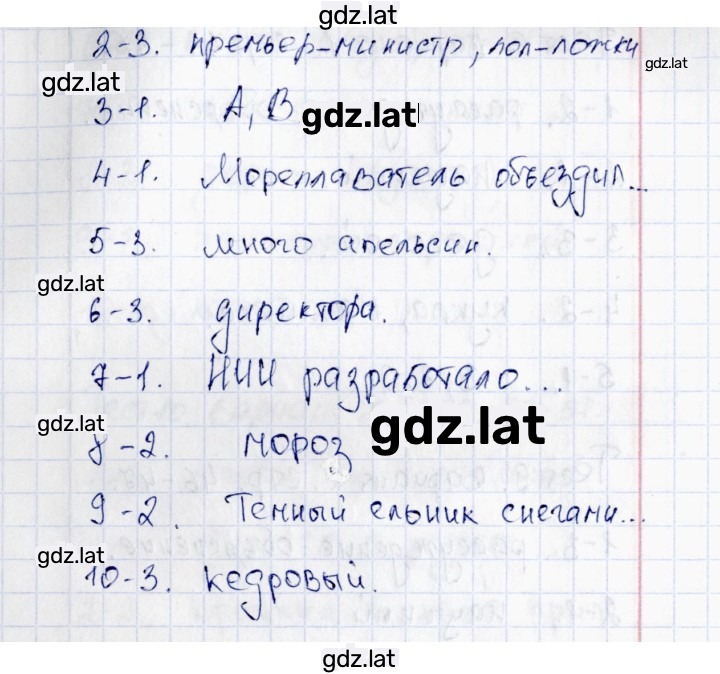 gdz.lat
2-3. премьер-министр, пол-ложки
gdz.lat
gdz.lat
3-1. А, В gdz.lat
4-1. Мореплаватель объездил...
5-3. много апельсин.
gdz.lat
6-3. директора.
7-1. НИИ разработало...
gdz.lat
gdz.lat
8-2. мороз
9-2. Темный ельник снегами...
gdz.lat
10-3. кедровый.
gdz.lat